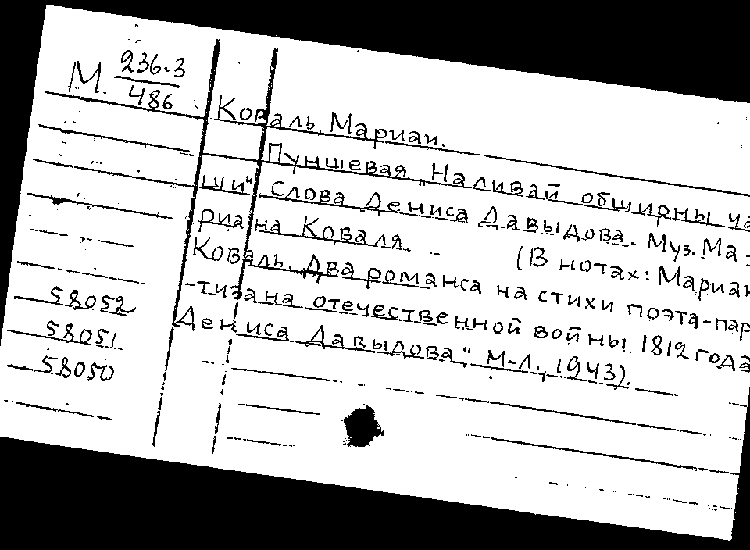 М. 236.3
486
Коваль Мариан.
Пуншевая „Наливай обширны ча
ши" слова Дениса Давыдова. Муз. Ма-
риана Коваля. -
(В нотах: Мариан
Коваль. Два романса на стихи поэта-пар
-тизана отечественной войны 1812 года
Дениса Давыдова", М-Л., 1943).
58052
58051
58050